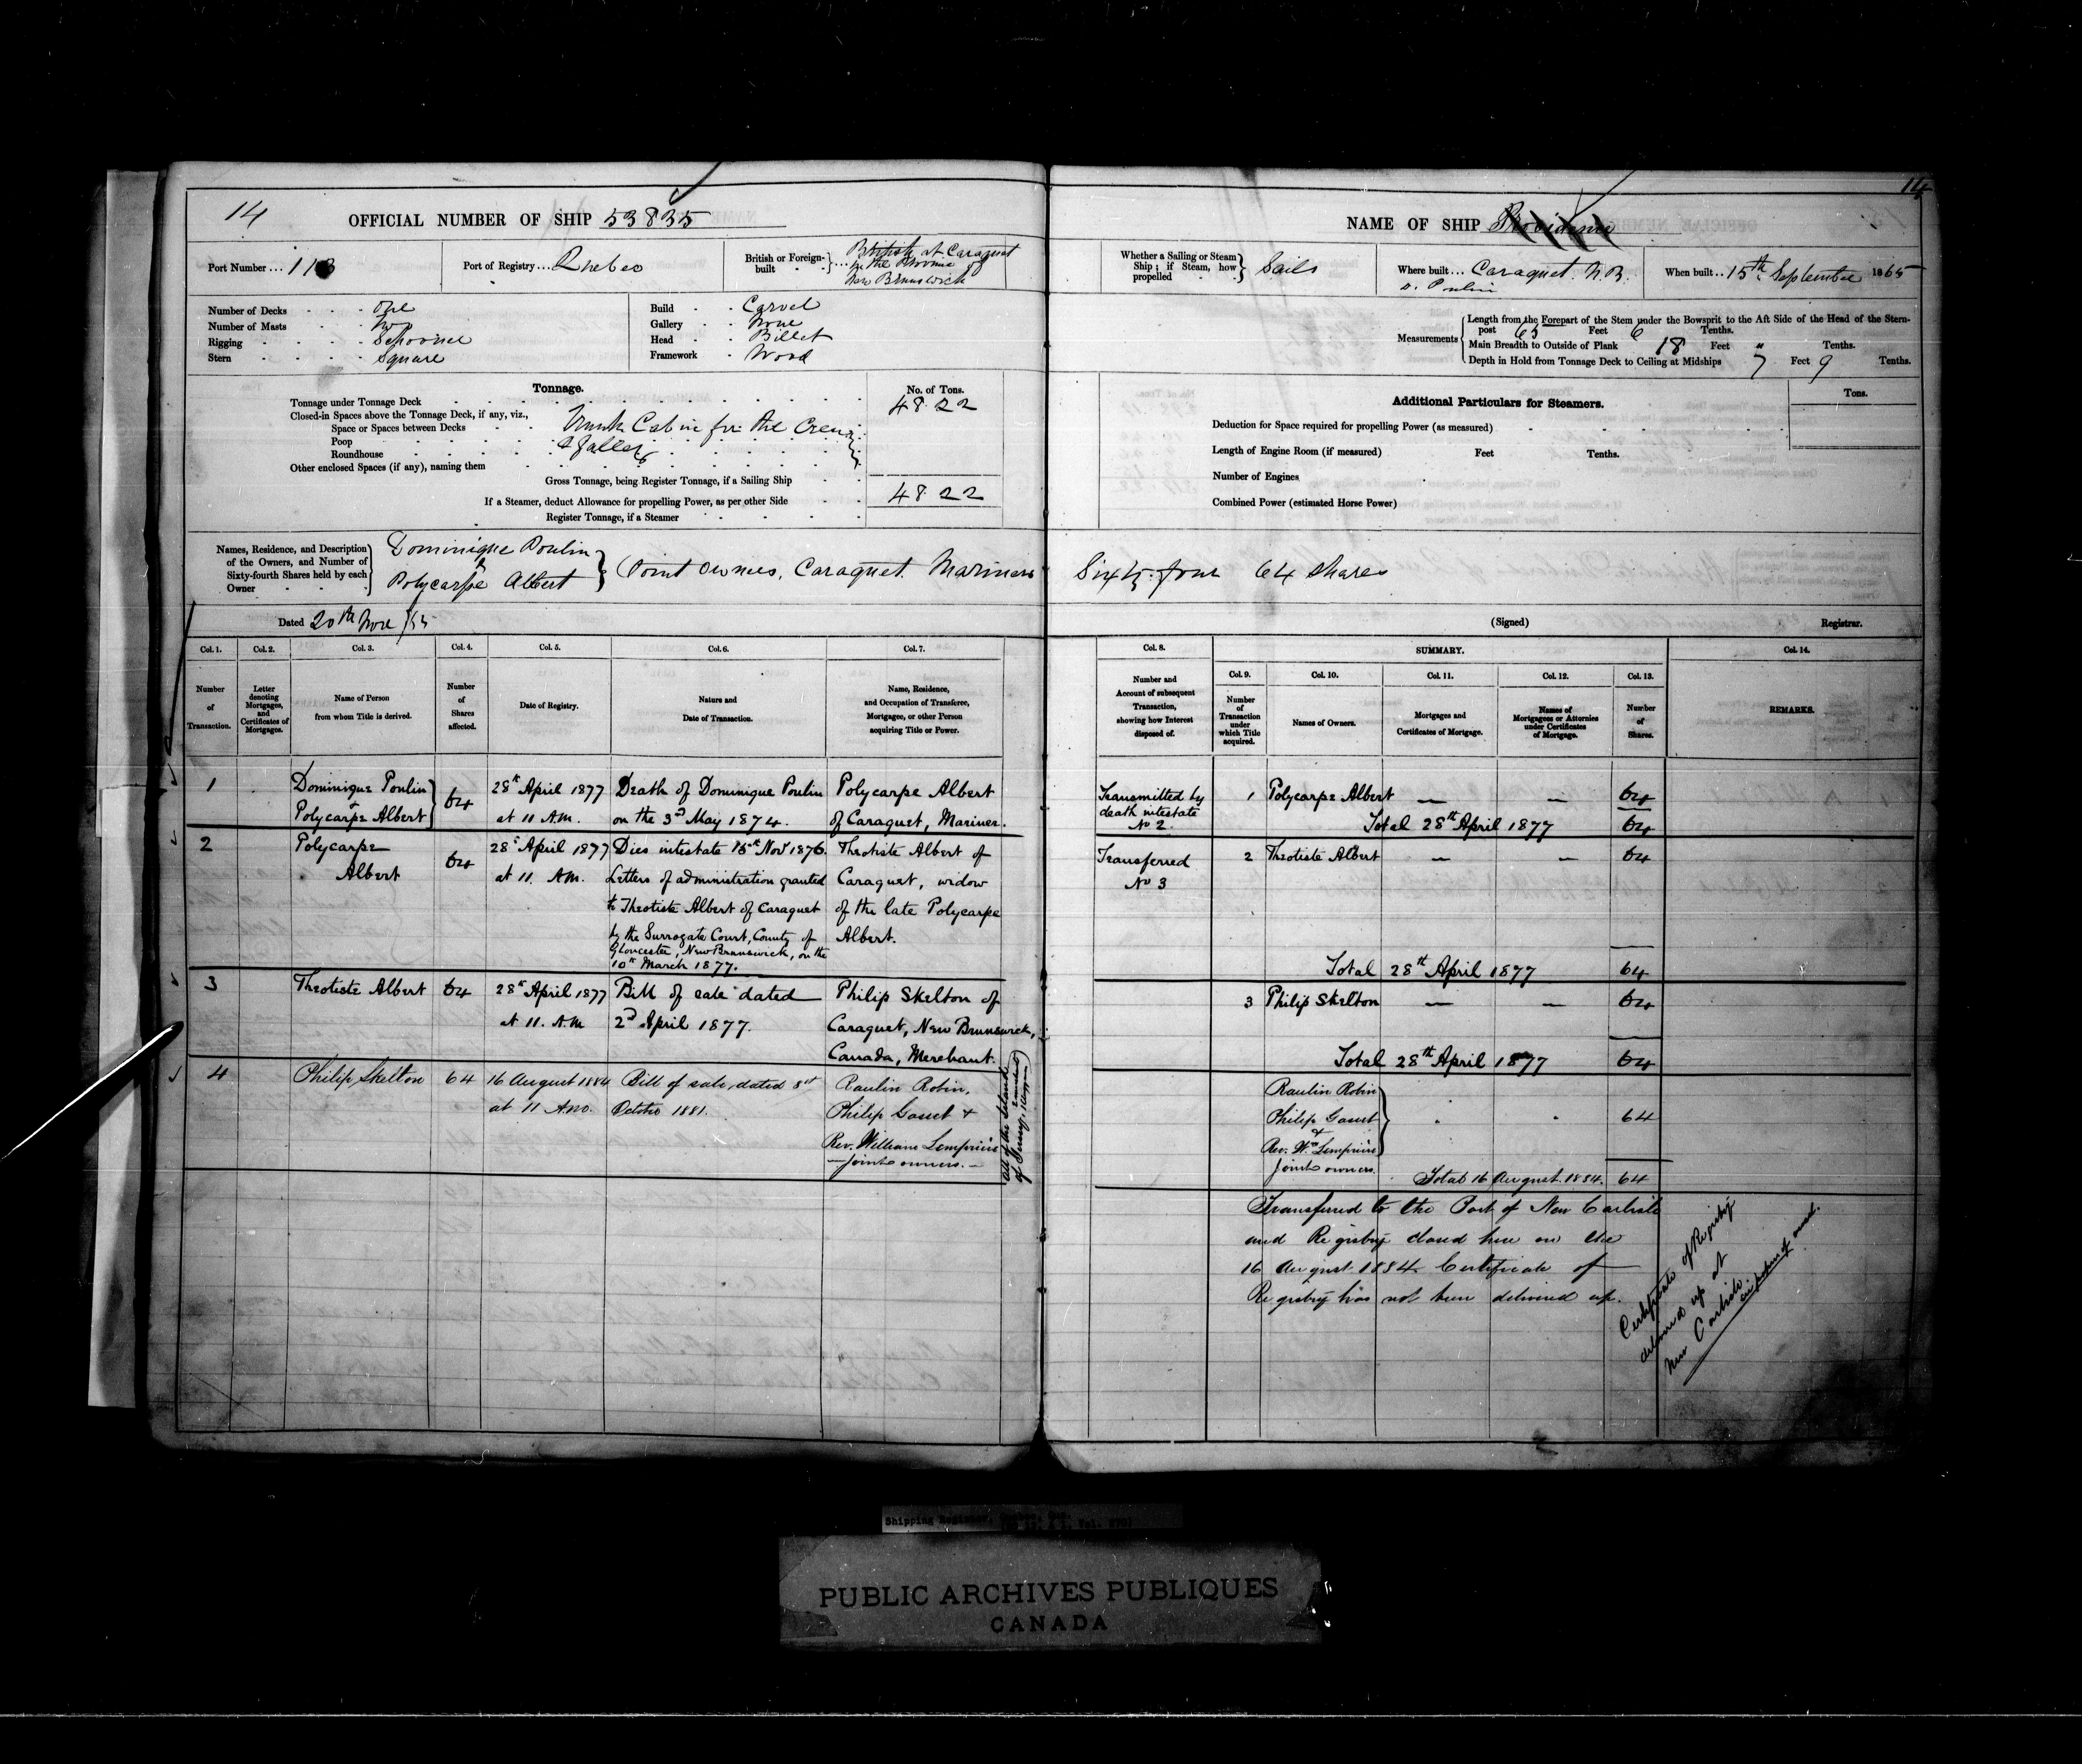 14
OFFICIAL NUMBER OF SHIP 53835
Port Number ... 113
Port of Registry ... Quebec
British or Foreign-built
British at Caraquet
in the Province of
New Brunswick
Number of Decks One
Number of Masts Two
Rigging Schooner
Stern Square
Build Carvel
Gallery None
Head Billet
Framework Wood
Tonnage.
No. of Tons.
Tonnage under Tonnage Deck 48.22
Closed-in Spaces above the Tonnage Deck, if any, viz.,
Space or Spaces between Decks
Trunk Cabin for the Crew
Poop
& Galley
Roundhouse
Other enclosed Spaces (if any), naming them
Gross Tonnage, being Register Tonnage, if a Sailing Ship
If a Steamer, deduct Allowance for propelling Power, as per other Side
48.22
Register Tonnage, if a Steamer
Names, Residence, and Description
of the Owners, and Number of
Sixty-fourth Shares held by each
Owner
Dominique Poulin
&
Polycarpe Albert
Joint Owners, Caraquet. Mariners
Dated 20th Nov /65
Col. 1. Col. 2. Col. 3. Col. 4. Col. 5. Col. 6. Col. 7.
Number of Transaction.
Letter denoting Mortgages, and Certificates of Mortgages.
Name of Person from whom Title is derived.
Number of Shares affected.
Date of Registry.
Nature and Date of Transaction.
Name, Residence, and Occupation of Transferee, Mortgagee, or other Person acquiring Title or Power.
1 Dominique Poulin & Polycarpe Albert 64
28th April 1877 at 11 A.M.
Death of Dominique Poulin
on the 3rd May 1874.
Polycarpe Albert
of Caraquet, Mariner.
2 Polycarpe Albert 64
28th April 1877 at 11. A.M.
Dies intestate 15th Novr 1876.
Letters of administration granted
to Theotiste Albert of Caraquet
by the Surrogate Court, County of
Gloucester, New Brunswick, on the
10th March 1877.
Theotiste Albert of
Caraquet, widow
of the late Polycarpe
Albert.
3 Theotiste Albert 64
28th April 1877 at 11. A.M
Bill of sale dated
2nd April 1877.
Philip Skelton of
Caraquet, New Brunswick,
Canada, Merchant.
4 Philip Skelton 64
16 August 1884 at 11 A.M.
Bill of sale dated 8th
October 1881.
Raulin Robin,
Philip Gosset &
Rev. William Lempriere
—Joint owners.—
all of the Island
of Jersey,
14
NAME OF SHIP Providence
Whether a Sailing or Steam
Ship; if Steam, how
propelled
Sails
Where built ... Caraquet. N.B.
D. Poulin
When built .. 15th September 1865
Measurements
Length from the Forepart of the Stem under the Bowsprit to the Aft Side of the Head of the Stern-
post 65 Feet 6 Tenths.
Main Breadth to Outside of Plank 18 Feet " Tenths.
Depth in Hold from Tonnage Deck to Ceiling at Midships 7 Feet 9 Tenths.
Additional Particulars for Steamers.
Tons.
Deduction for Space required for propelling Power (as measured)
Length of Engine Room (if measured) Feet Tenths.
Number of Engines
Combined Power (estimated Horse Power)
Sixty four 64 Shares
(Signed) Registrar.
Col. 8. SUMMARY. Col. 14.
Number and Account of subsequent Transaction, showing how Interest disposed of.
Col. 9. Col. 10. Col. 11. Col. 12. Col. 13.
Number of Transaction under which Title acquired.
Names of Owners.
Mortgages and Certificates of Mortgage.
Names of Mortgagees or Attornies under Certificates of Mortgage.
Number of Shares.
REMARKS.
Transmitted by
death intestate
No 2.
1 Polycarpe Albert — — 64
Total 28th April 1877 64
Transferred
No 3
2 Theotiste Albert — — 64
Total 28th April 1877 64
3 Philip Skelton — — 64
Total 28th April 1877 64
Raulin Robin
Philip Gosset
&
Rev. Wm Lempriere
Joint owners.
64
Total 16 August. 1884. 64
Transferred to the Port of New Carlisle
and Registry closed here on the
16 August 1884. Certificate of
Registry has not been delivered up.
Certificate of Registry
delivered up at
New Carlisle.
Shipping Register, Quebec, Que.
PUBLIC ARCHIVES PUBLIQUES
CANADA